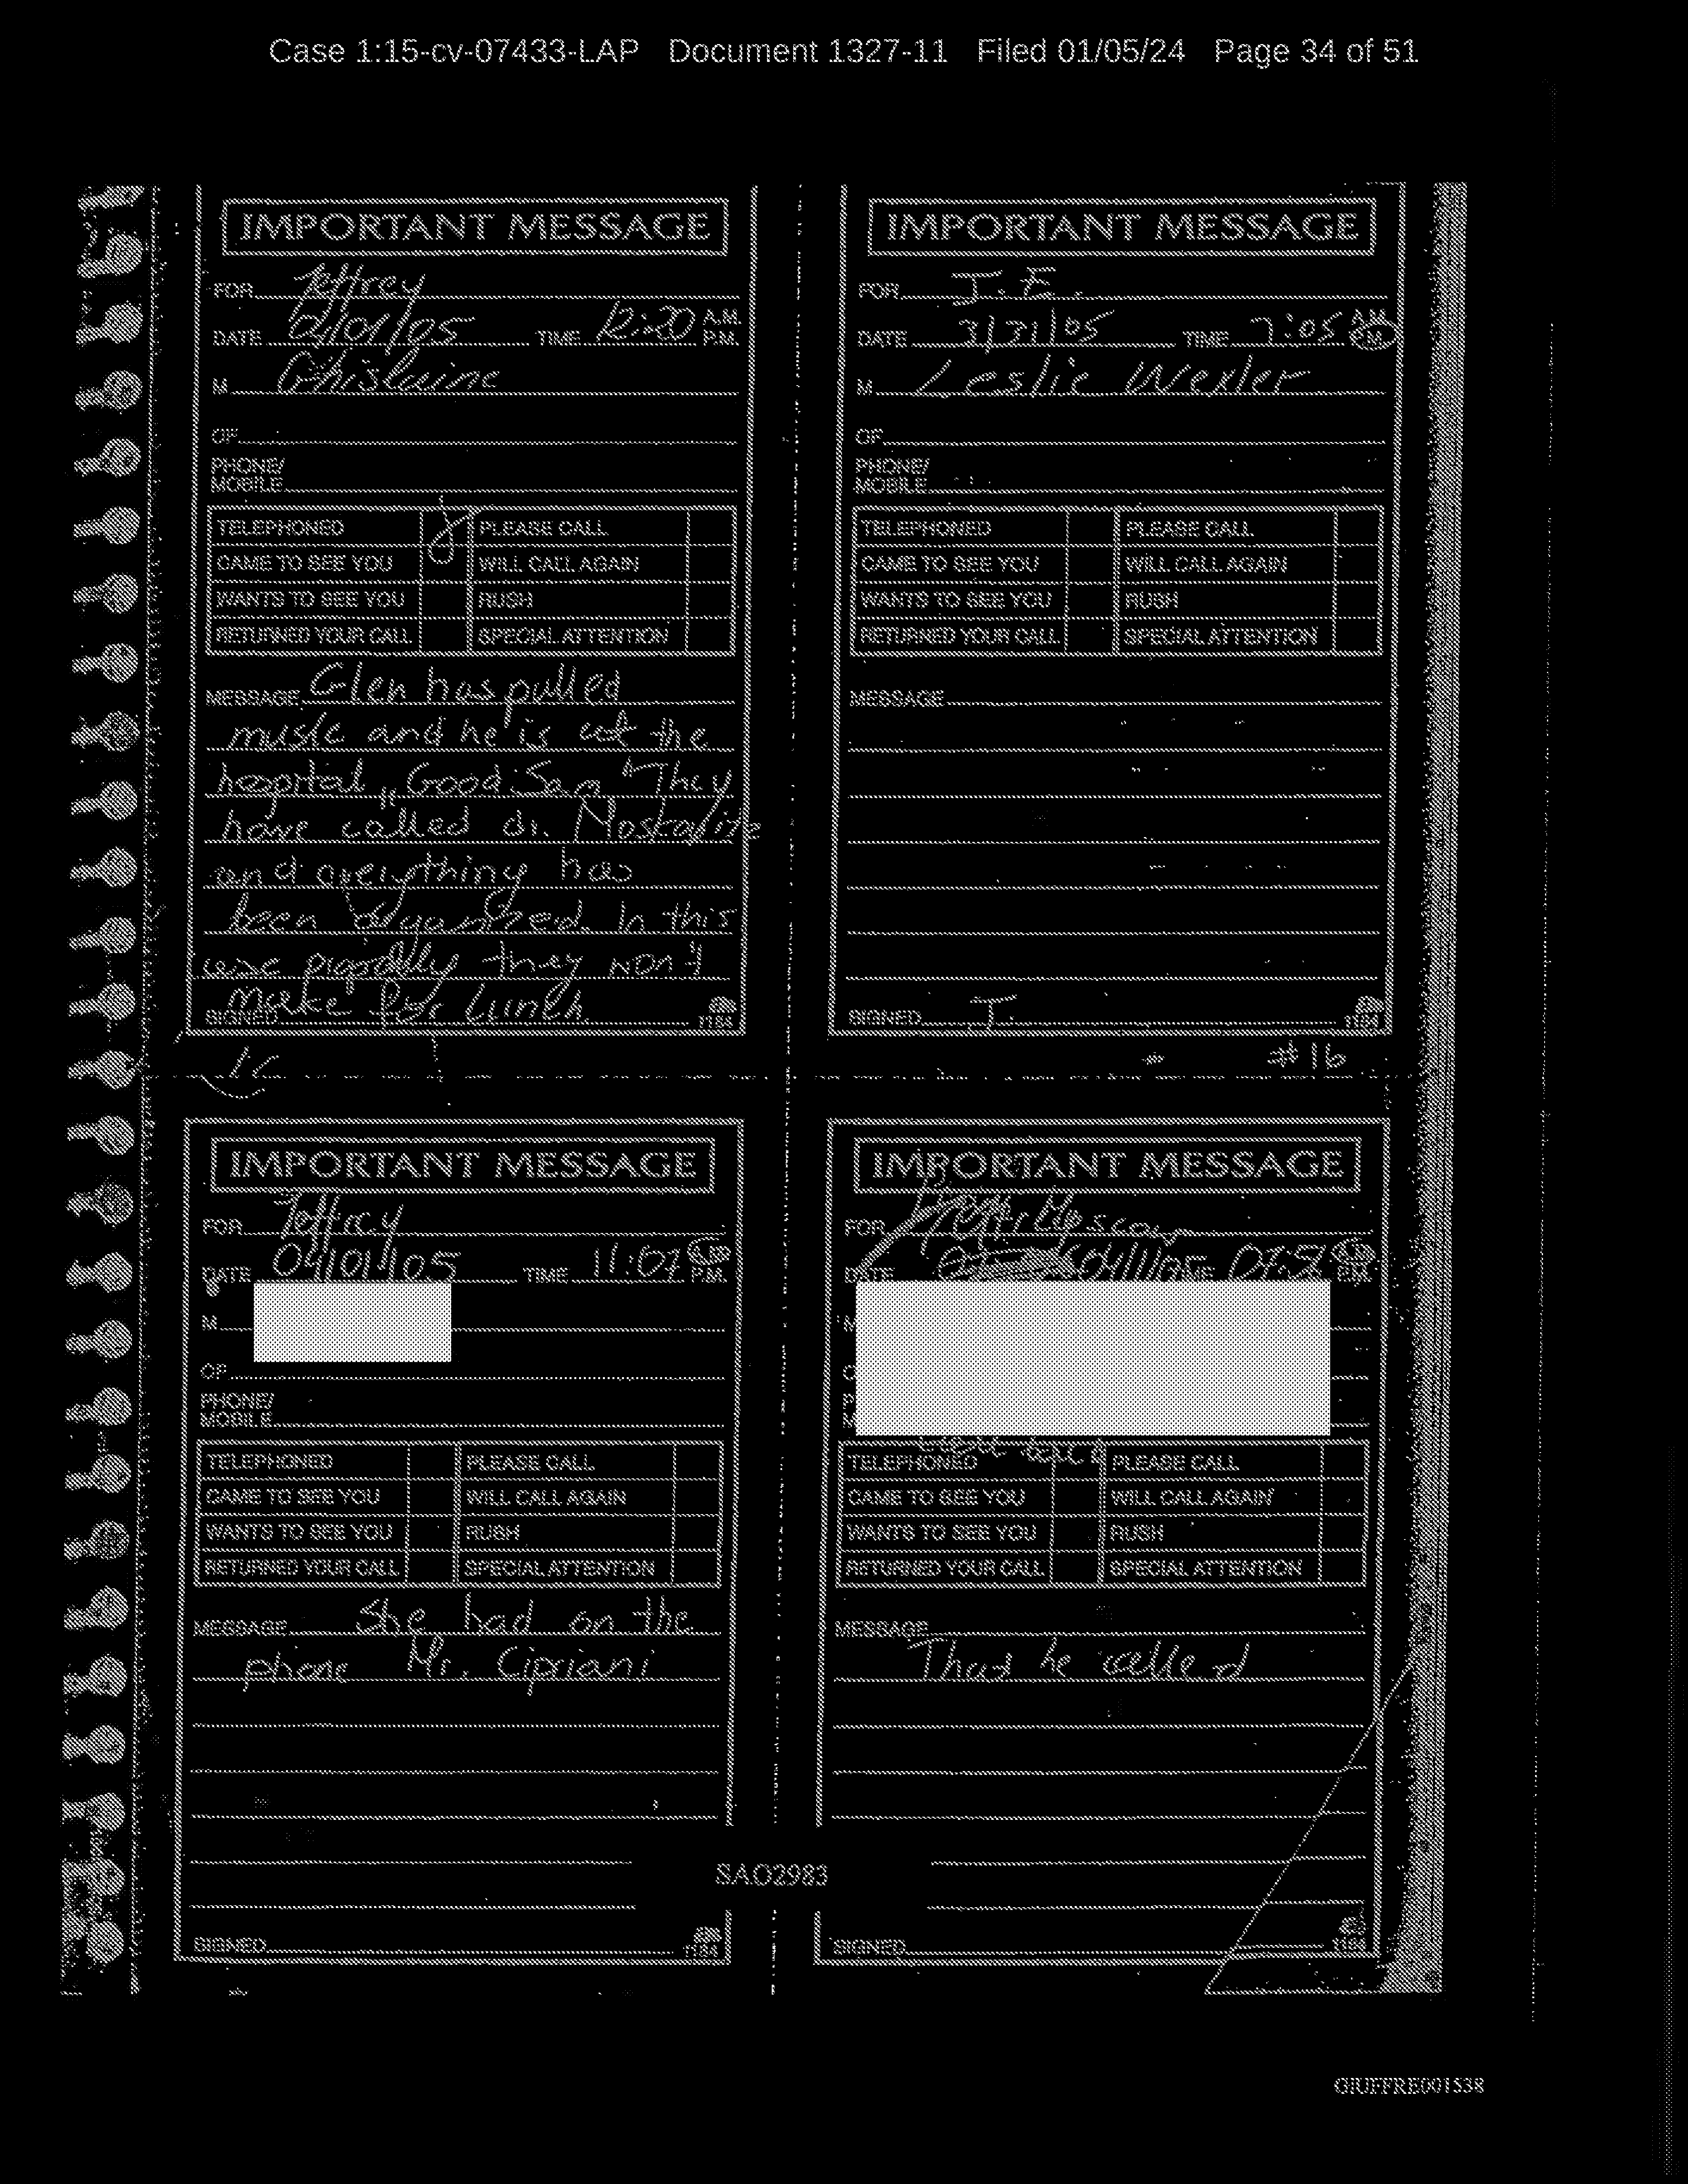 Case 1:15-cv-07433-LAP Document 1327-11 Filed 01/05/24 Page 34 of 51
IMPORTANT MESSAGE
FOR Jeffrey
DATE 04/01/05 TIME 12:20 A.M. P.M.
M Ghislaine
OF
PHONE/
MOBILE
TELEPHONED PLEASE CALL
CAME TO SEE YOU WILL CALL AGAIN
WANTS TO SEE YOU RUSH
RETURNED YOUR CALL SPECIAL ATTENTION
MESSAGE Glen has pulled
muslc and he is at the
hospital "Good Sam" They
have called dr.
and everything has
been organized. In this
they won't
make for lunch.
SIGNED 1184
IMPORTANT MESSAGE
FOR J.E.
DATE 3/31/05 TIME 7:05 A.M. P.M.
M Leslie Wexler
OF
PHONE/
MOBILE
TELEPHONED PLEASE CALL
CAME TO SEE YOU WILL CALL AGAIN
WANTS TO SEE YOU RUSH
RETURNED YOUR CALL SPECIAL ATTENTION
MESSAGE
SIGNED J. 1184
#16
IMPORTANT MESSAGE
FOR Jeffrey
DATE 04/01/05 TIME 11:07 A.M. P.M.
M
OF
PHONE/
MOBILE
TELEPHONED PLEASE CALL
CAME TO SEE YOU WILL CALL AGAIN
WANTS TO SEE YOU RUSH
RETURNED YOUR CALL SPECIAL ATTENTION
MESSAGE She had on the
phone Mr. Cipriani
SIGNED 1184
IMPORTANT MESSAGE
FOR
DATE 04/1/05 TIME P.M.
M
TELEPHONED PLEASE CALL
CAME TO SEE YOU WILL CALL AGAIN
WANTS TO SEE YOU RUSH
RETURNED YOUR CALL SPECIAL ATTENTION
MESSAGE
That he called
SIGNED 1184
SAO2983
GIUFFRE001538